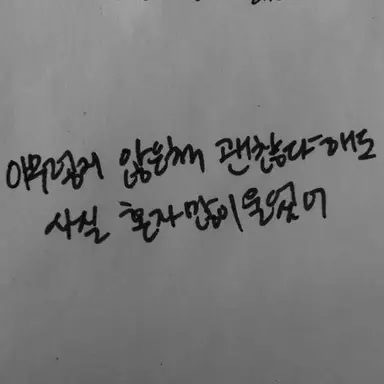 아무렇지 않은척 괜찮다해도
사실 혼자 많이 울었어